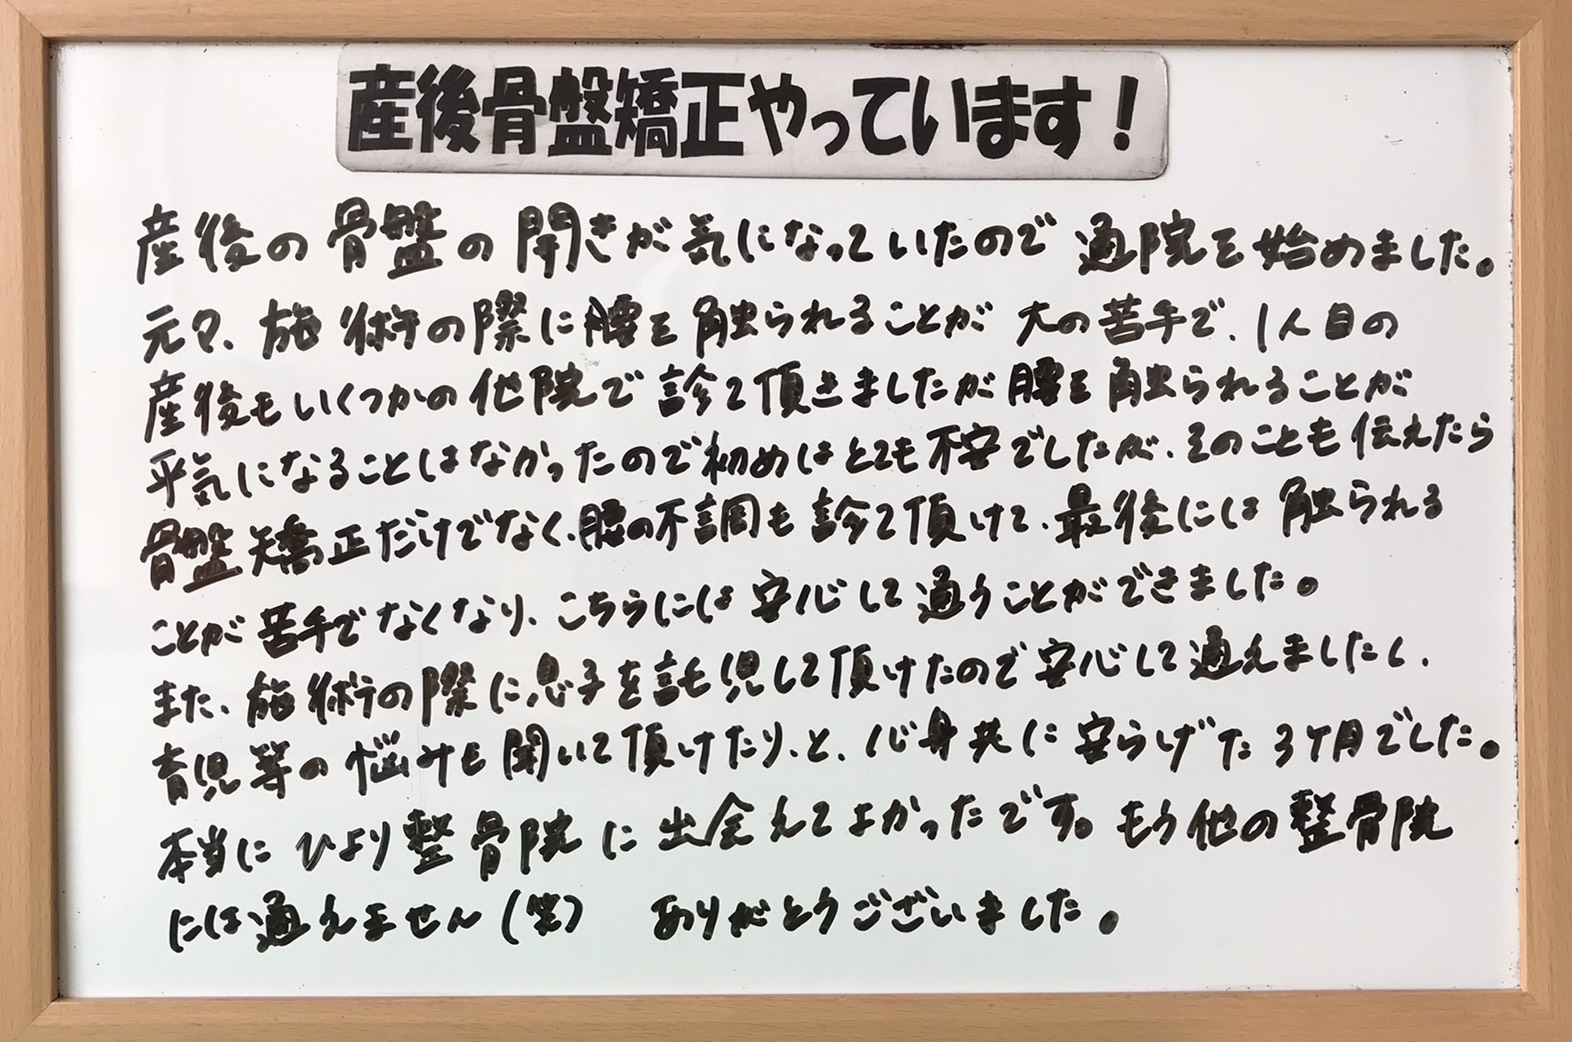 産後骨盤矯正やっています！
産後の骨盤の開きが気になっていたので通院を始めました。
元々、施術の際に腰を触られることが大の苦手で、1人目の
産後もいくつかの他院で診て頂きましたが腰を触られることが
平気になることはなかったので初めはとても不安でしたが、そのことも伝えたら
骨盤矯正だけでなく、腰の不調も診て頂けて、最後には触られる
ことが苦手でなくなり、こちらには安心して通うことができました。
また、施術の際に息子を託児して頂けたので安心して通えましたし、
育児等の悩みも聞いて頂けたり、と、心身共に安らげた3ヶ月でした。
本当にひより整骨院に出会えてよかったです。もう他の整骨院
には通えません(笑)　ありがとうございました。